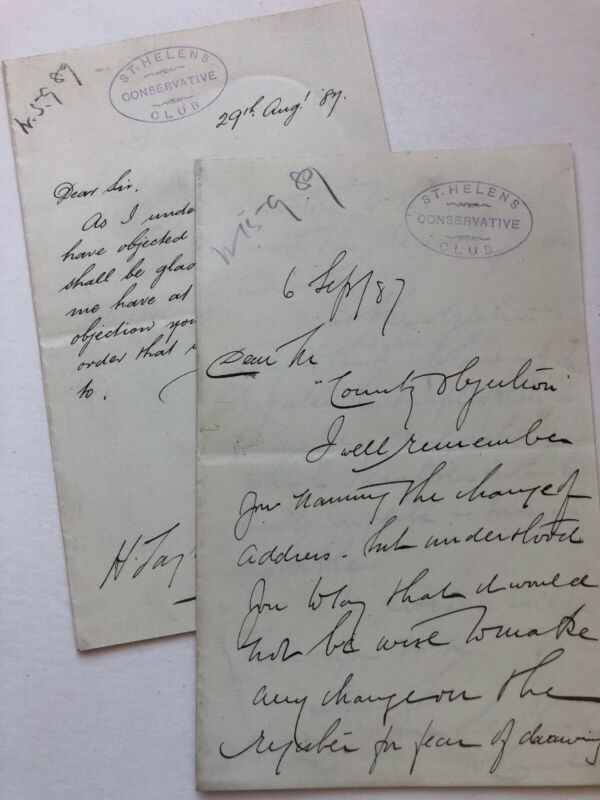 ST. HELENS
CONSERVATIVE
CLUB
29th Augt '87.
Dear Sir.
As I unde
have objected
shall be glad
me have at
objection you
order that
to.
H. Tay
ST. HELENS
CONSERVATIVE
CLUB
6 Sep/87
Dear Sir
"County objection"
I well remember
you naming the change of
address - but understood
you to say that it would
not be wise to make
any change on the
register for fear of drawing